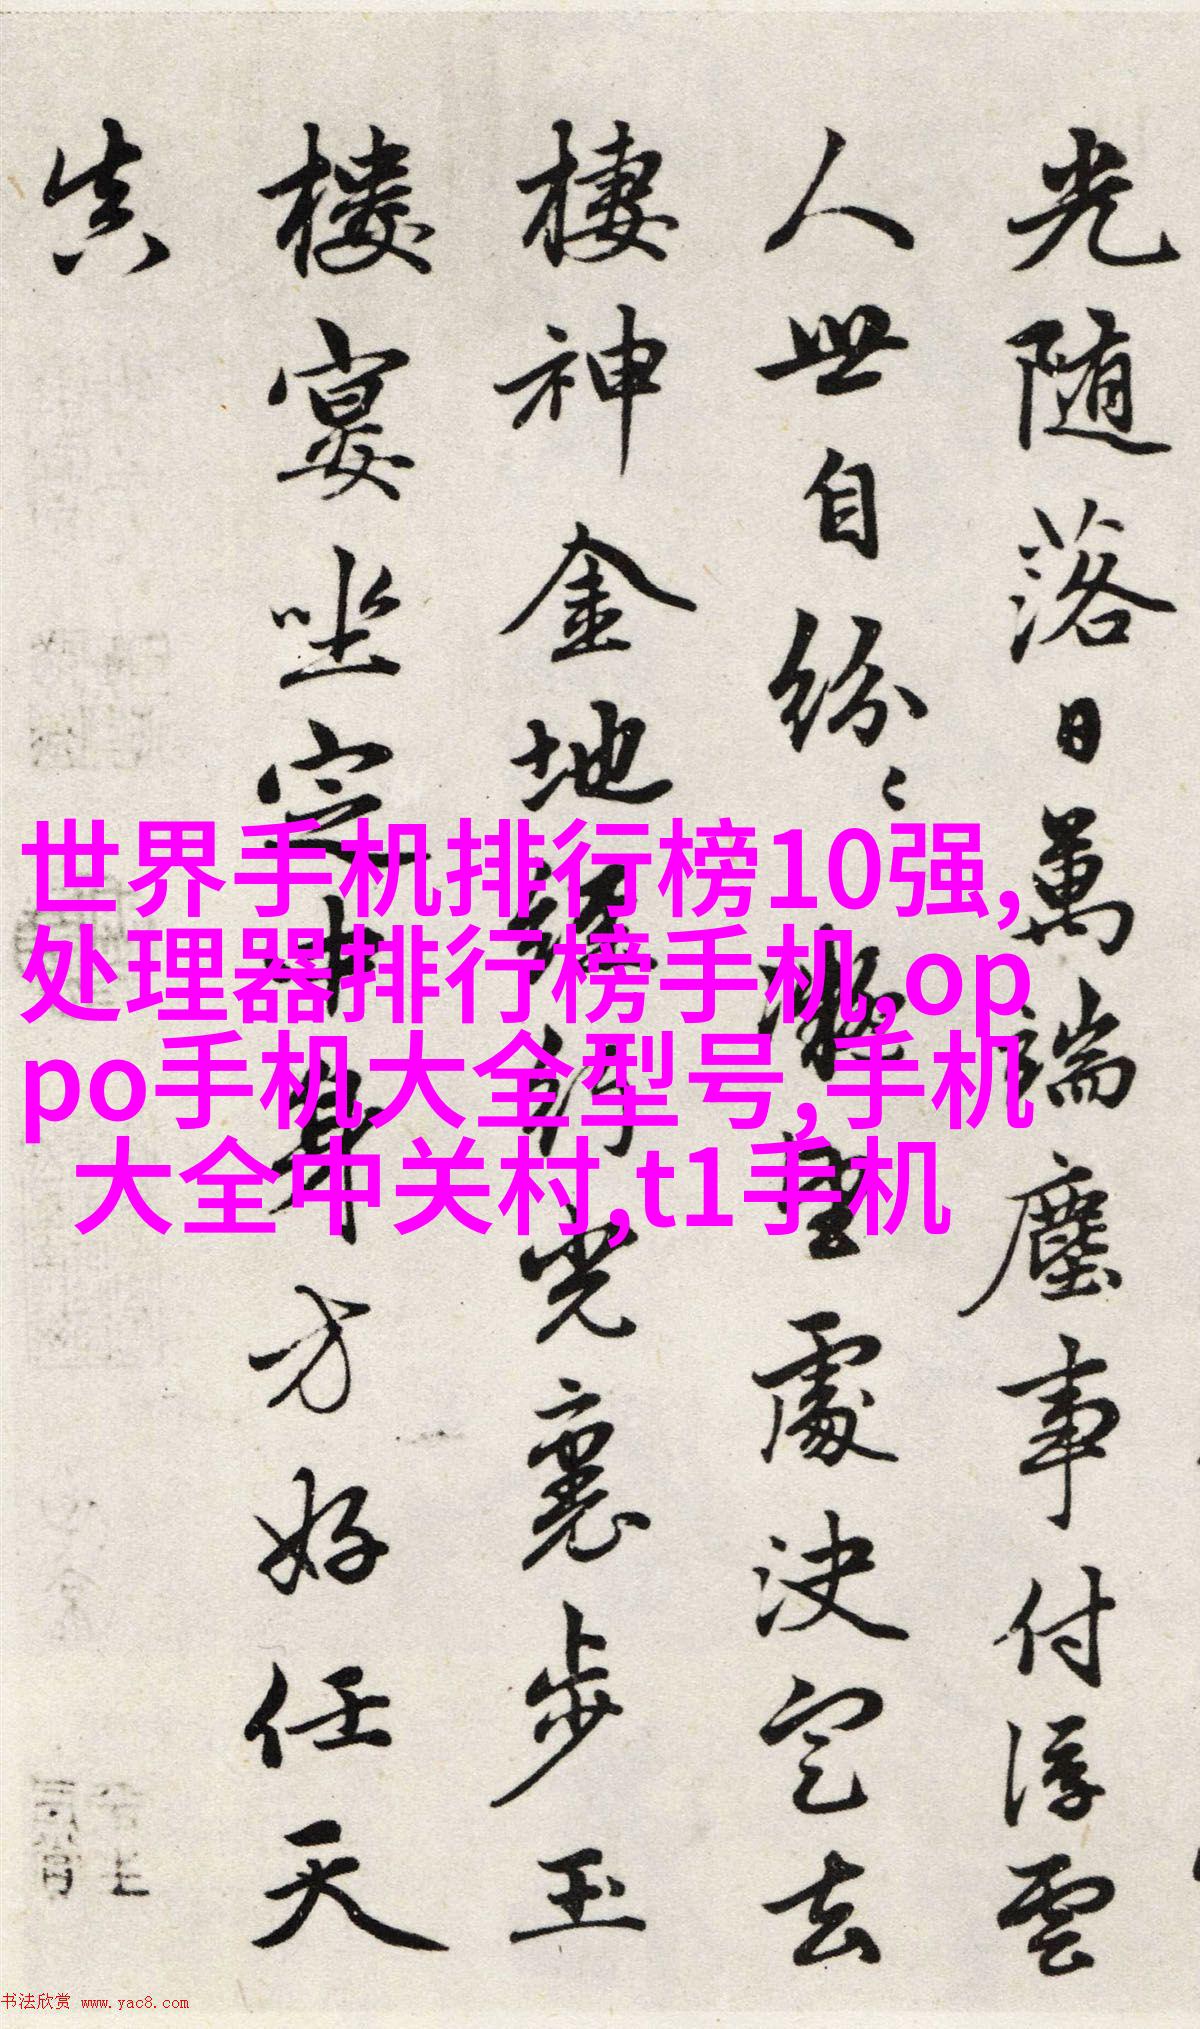 光随落日萬端塵事付浮雲
人世自紛〻凝望處決定去
棲神金地經行光裏步玉
樓宴坐定中身方好任天
真
世界手机排行榜10强,
处理器排行榜手机,op
po手机大全型号,手机
大全中关村,t1手机
书法欣赏 www.yac8.com